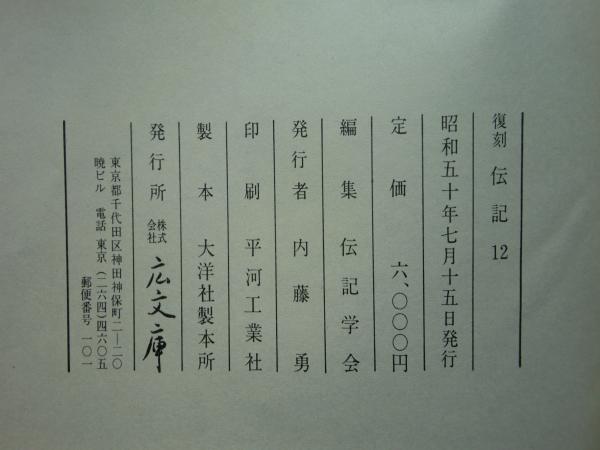 復刻 伝記 12
昭和五十年七月十五日発行
定価 六、〇〇〇円
編集 伝記学会
発行者 内藤勇
印刷 平河工業社
製本 大洋社製本所
発行所 株式会社 広文庫
東京都千代田区神田神保町二―二〇
暁ビル 電話 東京(二六四)四六〇五
郵便番号 一〇一